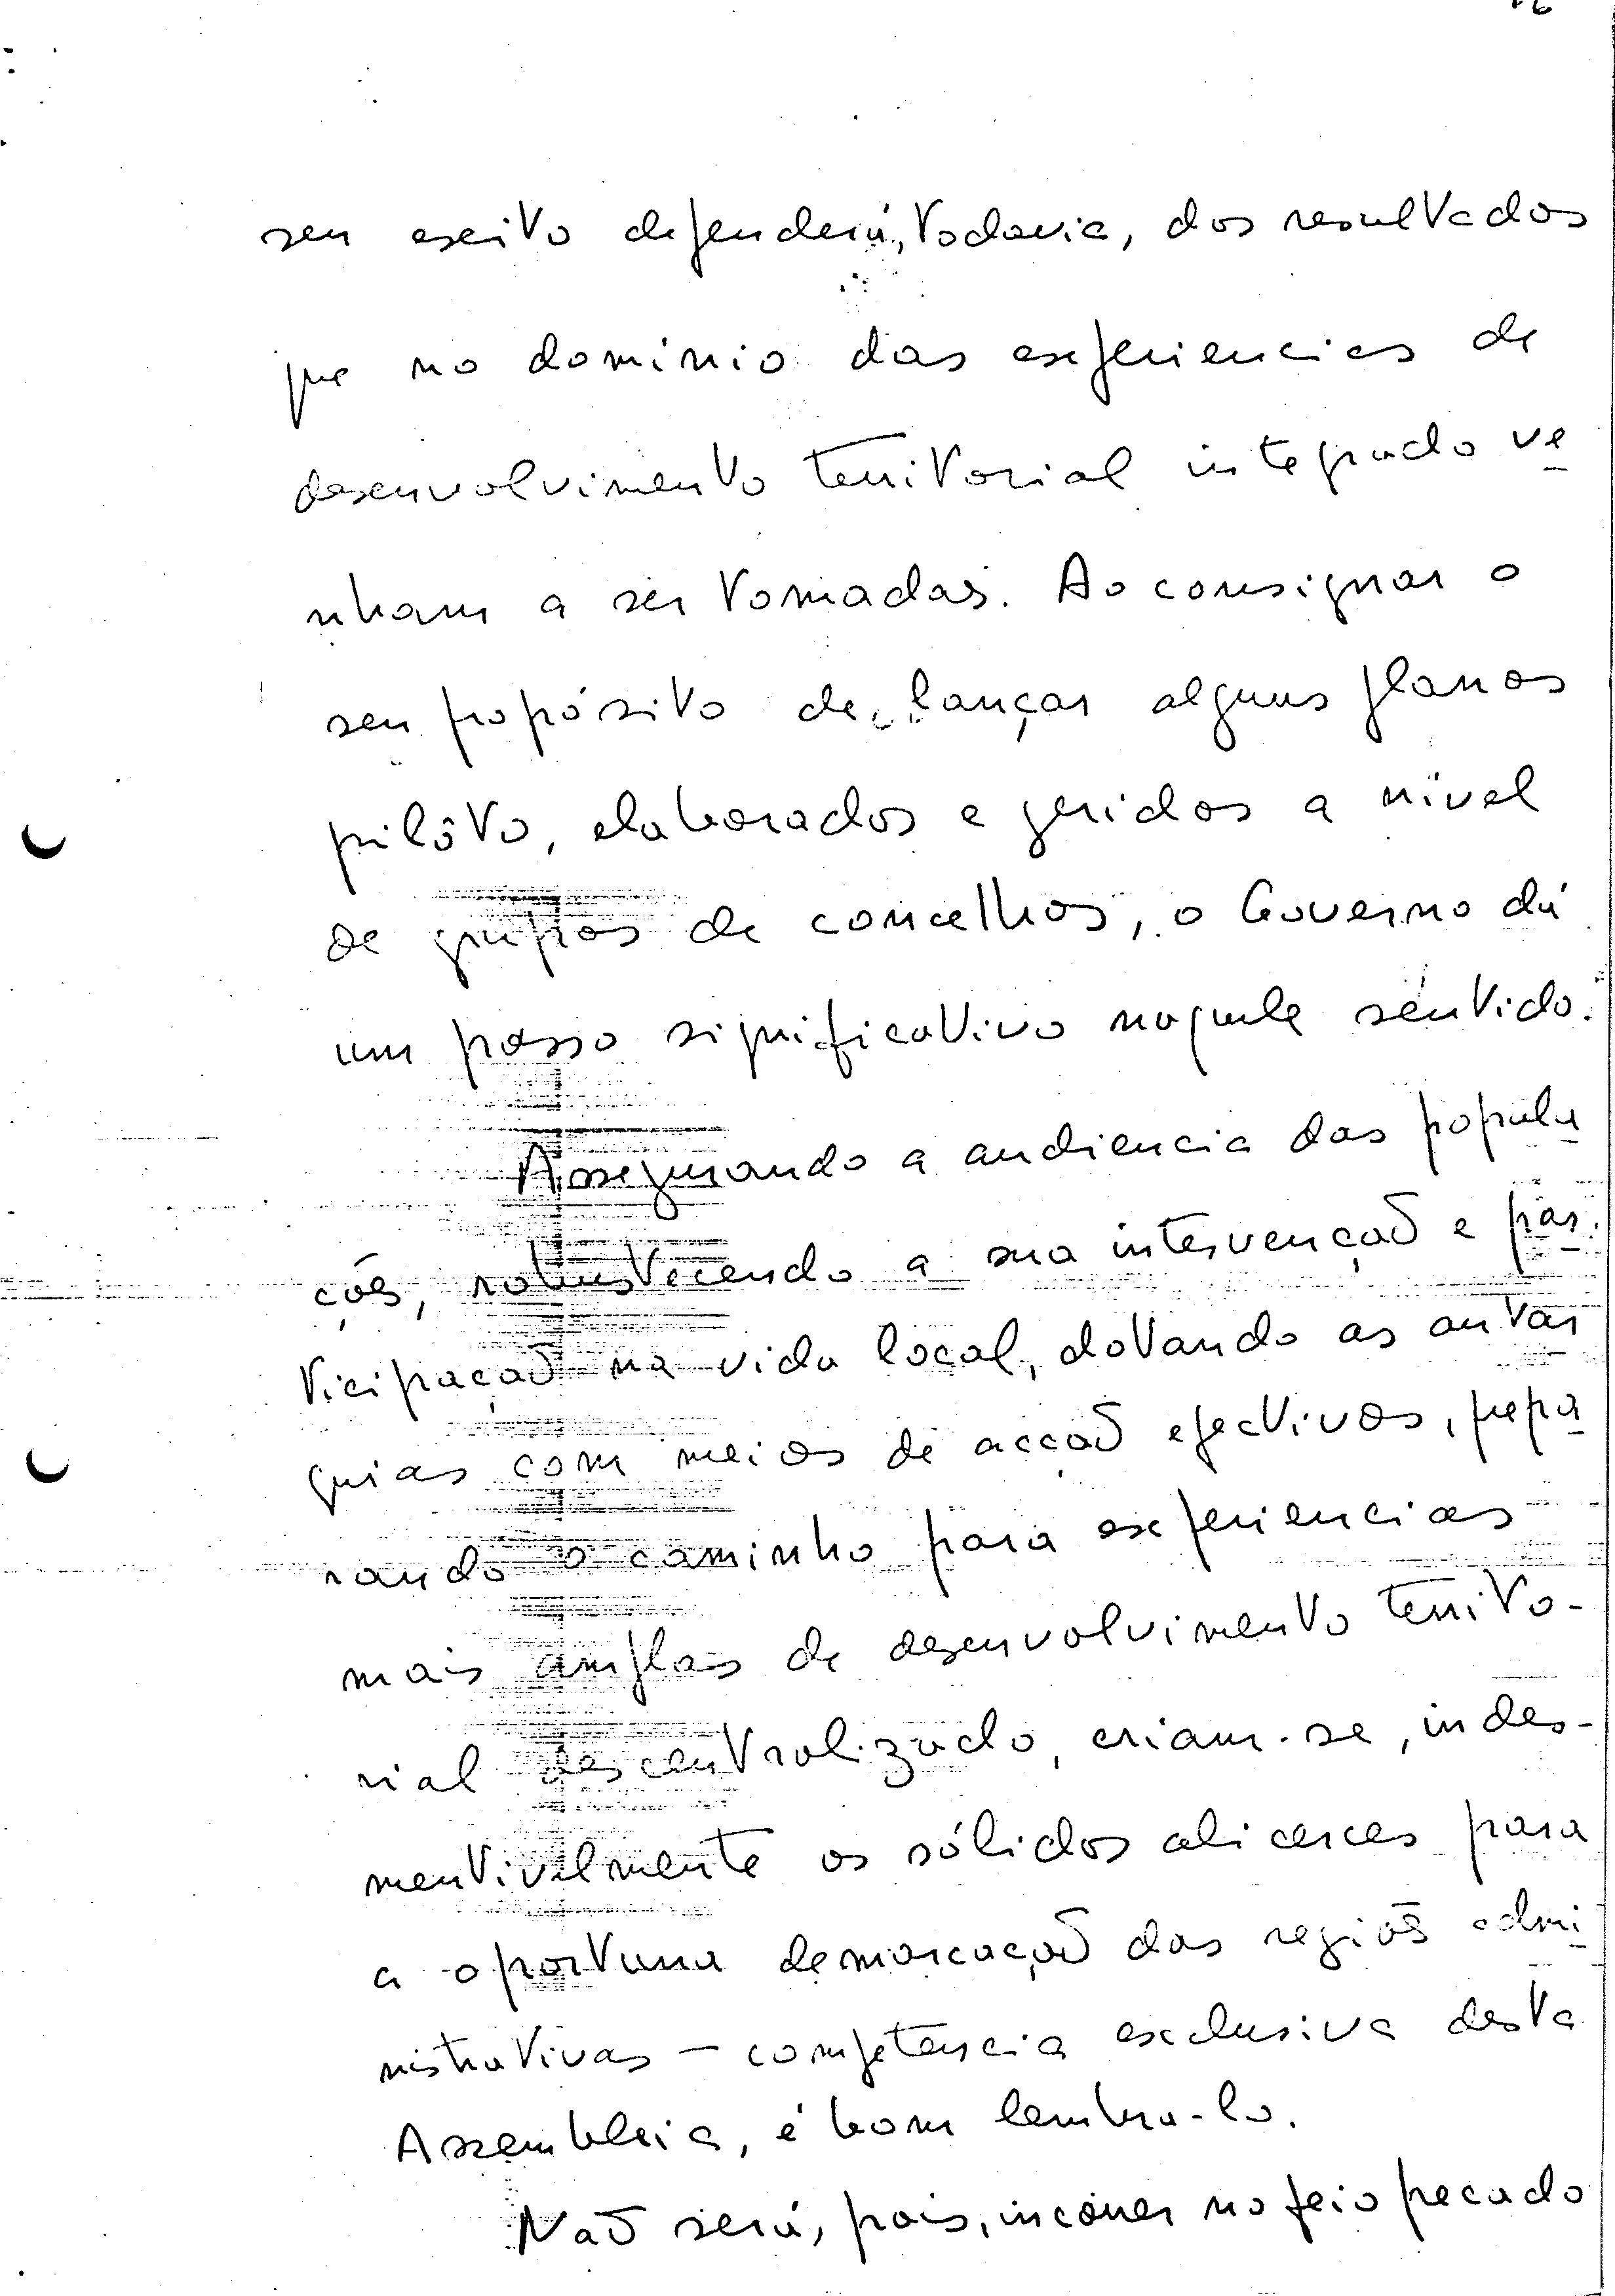 seu exito dependerá, todavia, dos resultados
que no domínio das experiencias de
desenvolvimento territorial integrado ve
nham a ser tomadas. Ao consignar o
seu propósito de lançar alguns planos
pilôto, elaborados e geridos a nivel
de grupos de concelhos, o Governo dá
um passo significativo naquele sentido.
Assegurando a audiencia das popula
ções, robustecendo a sua intervenção e par
ticipação na vida local, dotando as autar
quias com meios de acção efectivos, prepa
rando o caminho para experiencias
mais amplas de desenvolvimento territo-
rial descentralizado, criam-se, indes-
mentivelmente os sólidos alicerces para
a oportuna demarcação das regiões admi
nistrativas – competencia exclusiva desta
Assembleia, é bom lembra-lo.
Não será, pois, incorrer no feio pecado